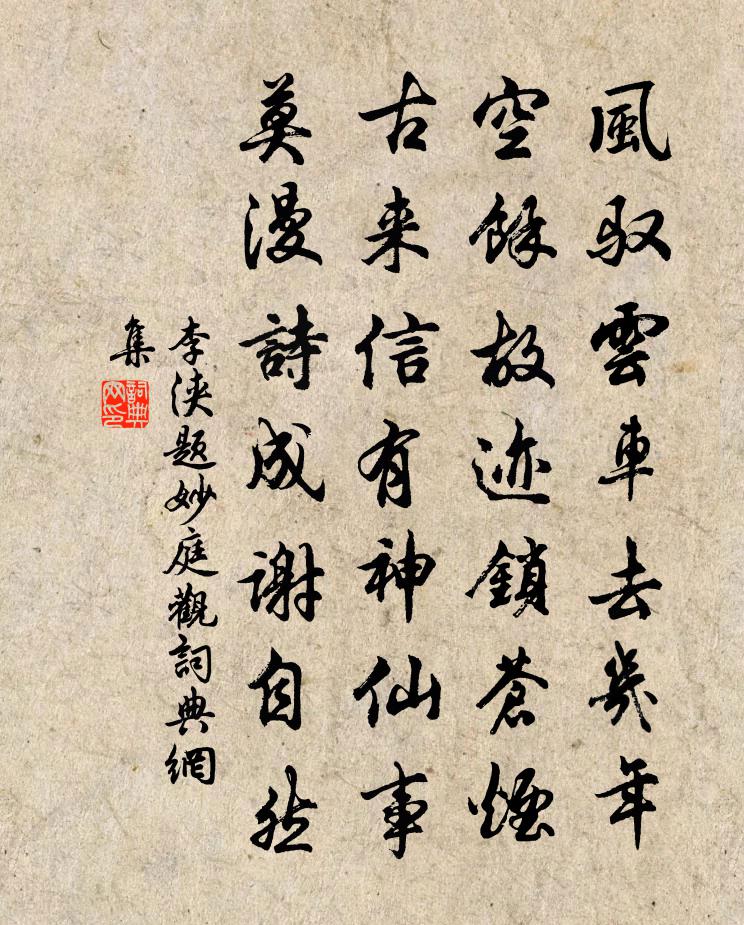 風驭雲車去幾年
空餘故迹鎖蒼煙
古来信有神仙事
莫漫詩成謝自然
李浹题妙庭觀詞典網
集
詞典
网印